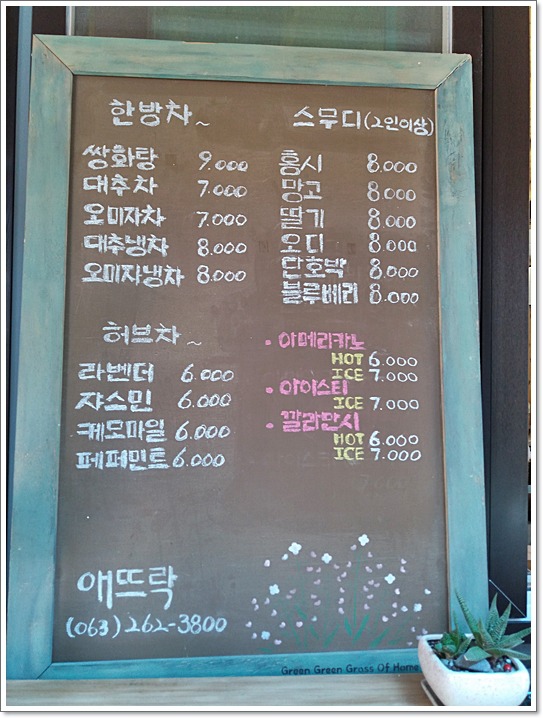 한방차~
쌍화탕 9.000
대추차 7.000
오미자차 7.000
대추냉차 8.000
오미자냉차 8.000
허브차~
라벤더 6.000
쟈스민 6.000
케모마일 6.000
페퍼민트 6.000
스무디(2인이상)
홍시 8.000
망고 8.000
딸기 8.000
오디 8.000
단호박 8.000
블루베리 8.000
• 아메리카노
HOT 6.000
ICE 7.000
• 아이스티
ICE 7.000
• 깔라만시
HOT 6.000
ICE 7.000
애뜨락
(063) 262-3800
Green Green Grass Of Home